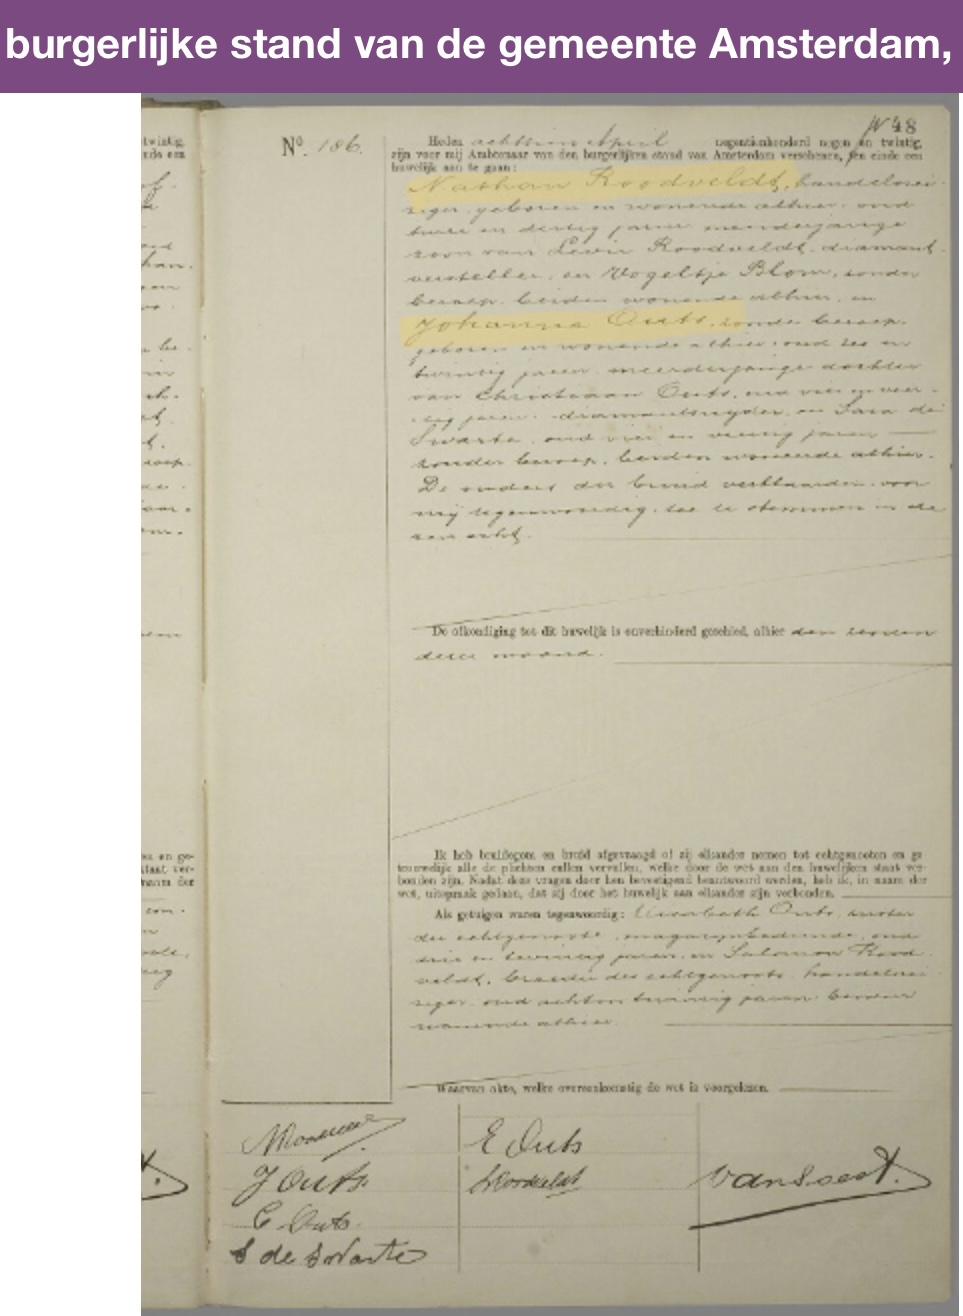 burgerlijke stand van de gemeente Amsterdam,
W 48
No. 186.
Heden achttien April negentienhonderd negen en twintig,
zijn voor mij Ambtenaar van den burgerlijken stand van Amsterdam verschenen, ten einde een
huwelijk aan te gaan:
Nathan Roodveldt, handelsrei-
ziger, geboren en wonende alhier, oud
twee en dertig jaren, meerderjarige
zoon van Levie Roodveldt, diamant-
versteller, en Vogeltje Blom, zonder
beroep, beiden wonende alhier, en
Johanna Outs, zonder beroep,
geboren en wonende alhier, oud zes en
twintig jaren, meerderjarige dochter
van Christiaan Outs, oud vier en veer-
tig jaren, diamantsnijder, en Sara de
Swarte, oud vier en veertig jaren
zonder beroep, beiden wonende alhier.
De ouders der bruid verklaarden voor
mij tegenwoordig, toe te stemmen in de
zen echt.
De afkondiging tot dit huwelijk is onverhinderd geschied, alhier den
dezer maand.
Ik heb bruidegom en bruid afgevraagd of zij elkander nemen tot echtgenooten en ge-
trouwelijk alle de plichten zullen vervullen, welke door de wet aan den huwelijken staat ver-
bonden zijn. Nadat deze vragen door hen bevestigend beantwoord werden, heb ik, in naam der
wet, uitspraak gedaan, dat zij door het huwelijk aan elkander zijn verbonden.
Als getuigen waren tegenwoordig: Elisabeth Outs, zuster
der echtgenoote, magazijnbediende, oud
drie en twintig jaren, en Salomon Rood-
veldt, broeder des echtgenoots, handelsrei-
ziger, oud achttwintig jaren, beiden
wonende alhier.
Waarvan akte, welke overeenkomstig de wet is voorgelezen.
J Outs.
C Outs.
S de Swarte
E Outs
van Soest.